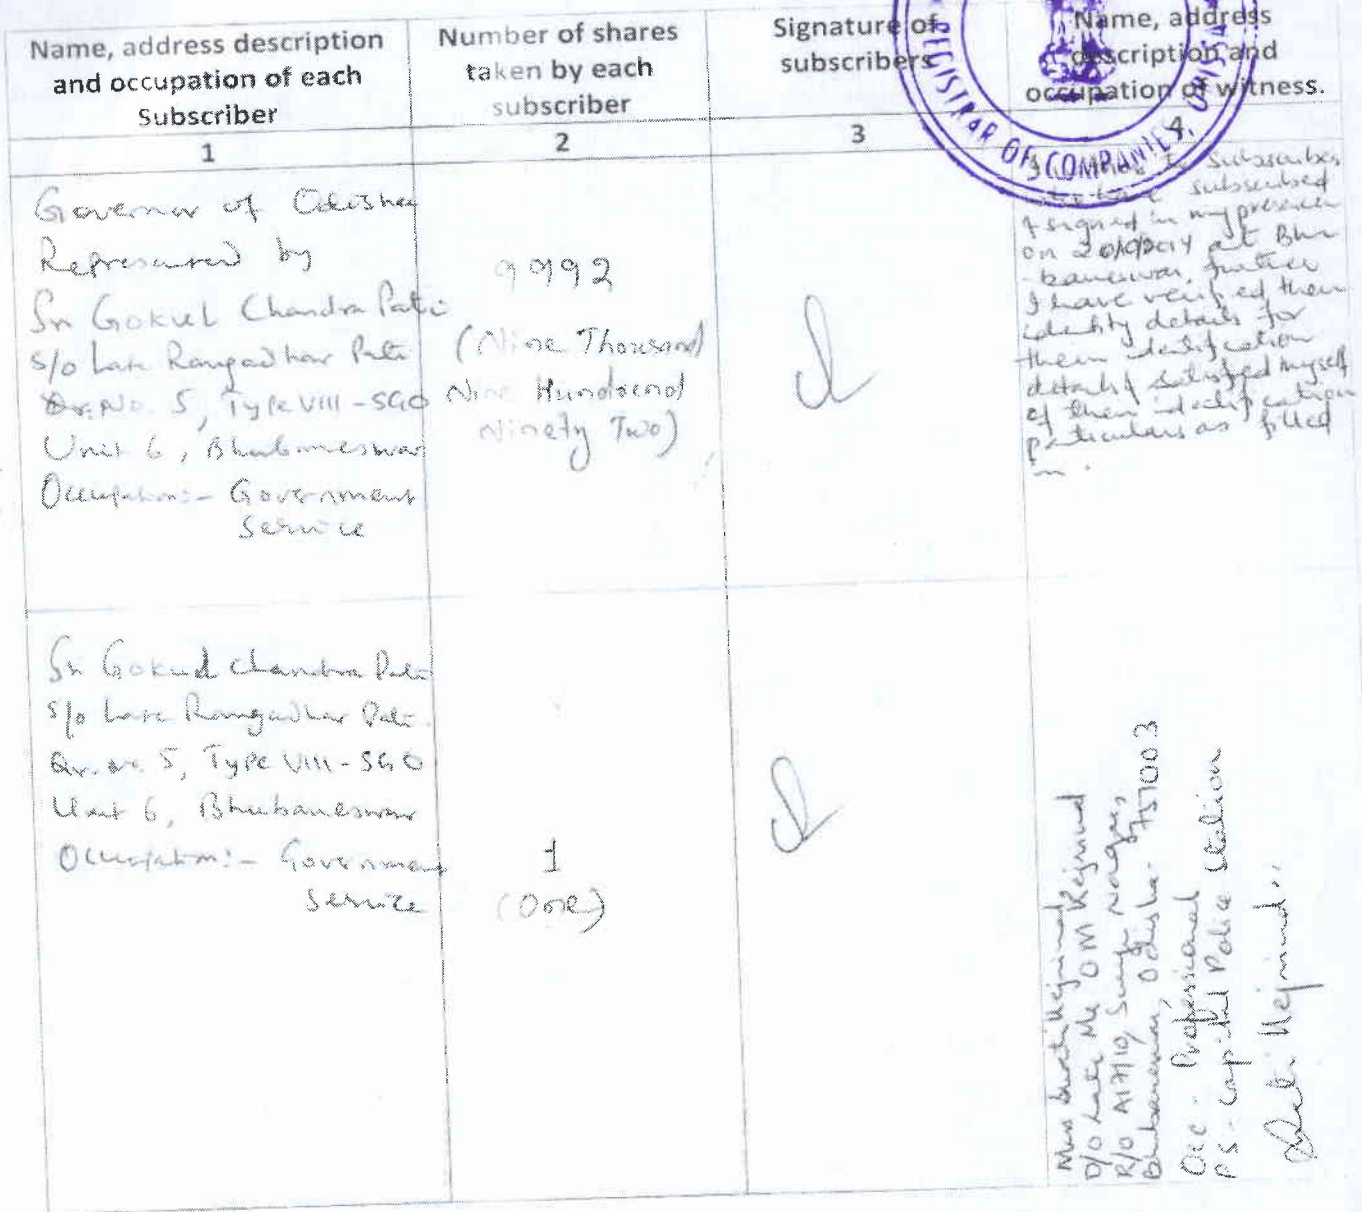 Name, address description
and occupation of each
Subscriber
Number of shares
taken by each
subscriber
Signature of
subscribers
Name, address
description and
occupation of witness.
REGISTRAR OF COMPANIES,
1
2
3
4
Governor of Odisha
Represented by
Sri Gokul Chandra Pati
S/o Late Rangadhar Pati
Qr. No. 5, Type VIII - SGO
Unit 6, Bhubaneswar
Occupation:- Government
Service
9992
(Nine Thousand
Nine Hundred
Ninety Two)
to subscriber
subscribed
& signed in my presence
on at Bhu
-baneswar, further
I have verified their
identity details for
their identification
details & satisfied myself
of their identification
particulars as filled
in.
Sri Gokul Chandra Pati
S/o Late Rangadhar Pati
Qr. No. 5, Type VIII - SGO
Unit 6, Bhubaneswar
Occupation:- Government
Service
1
(One)
Miss Kejriwal
D/o Late Mr OM Kejriwal
R/o A17/10, Nagar,
Bhubaneswar, Odisha- 757003
Occ - Professional
PS - Capital Police Station
Kejriwal